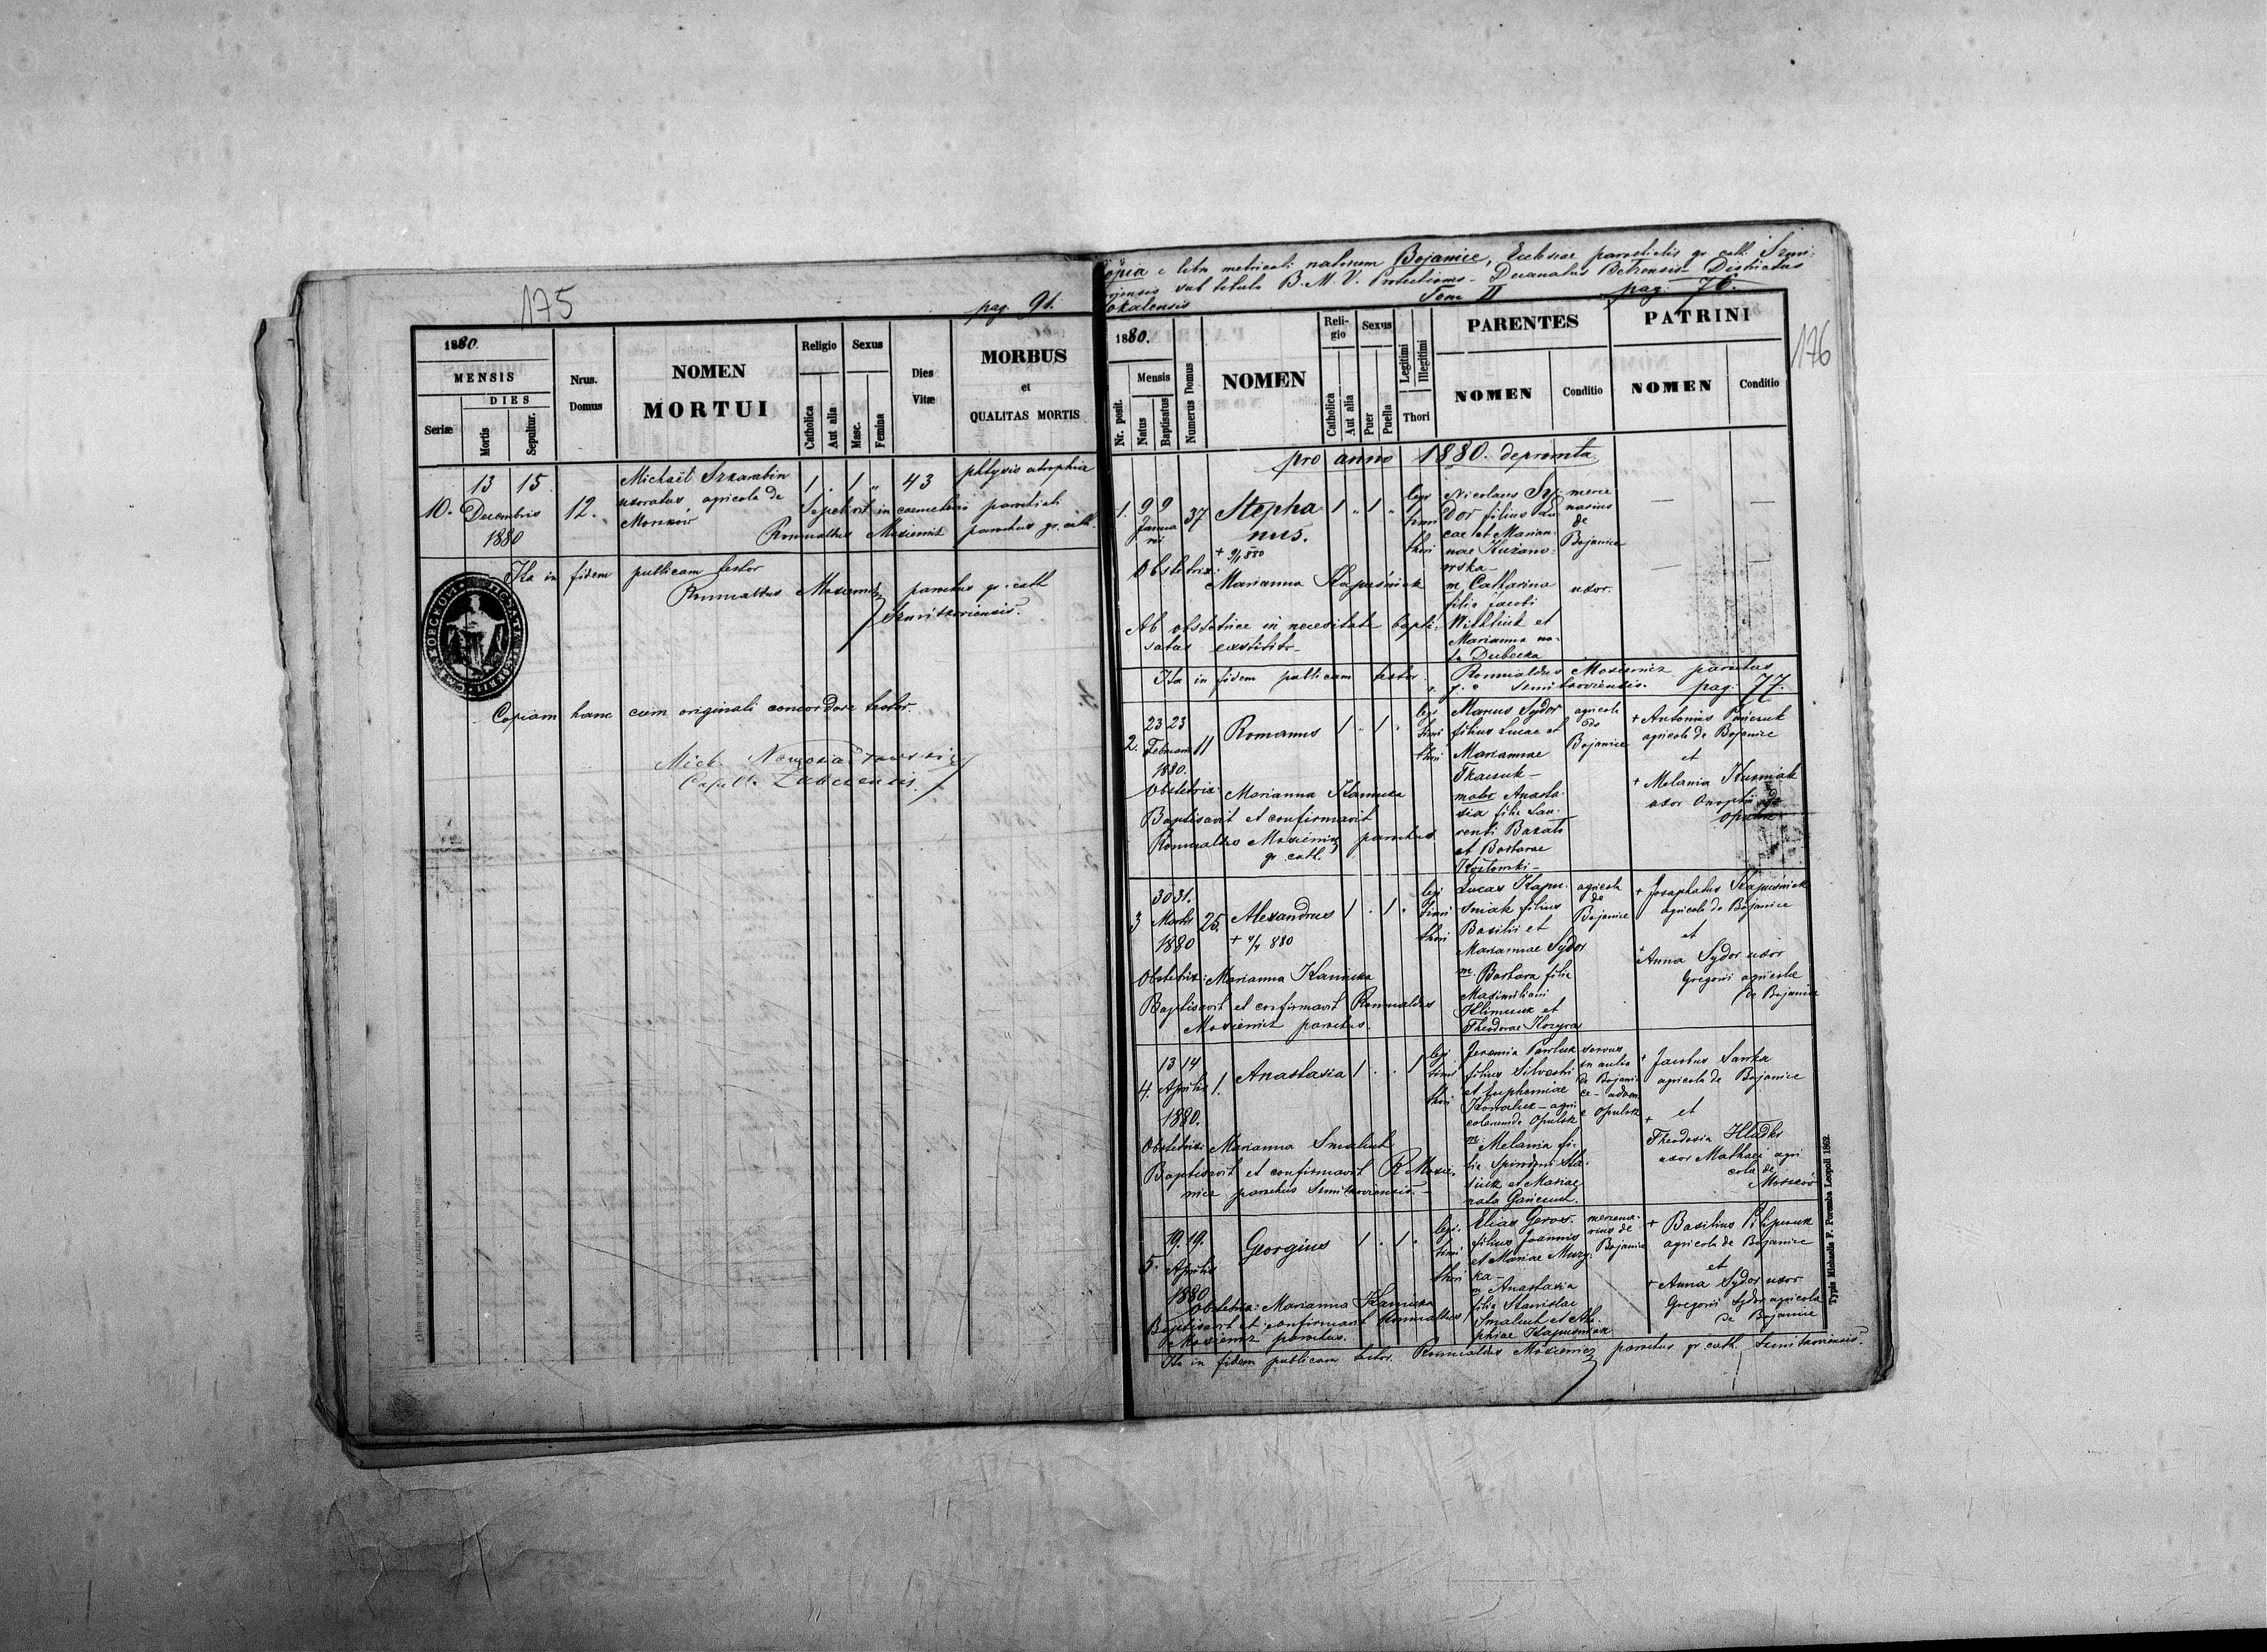 175
pag. 91.
1880.
MENSIS
DIES
Seriæ
Mortis
Sepultur.
Nrus.
Domus
NOMEN
MORTUI
Religio
Catholica
Aut alia
Sexus
Masc.
Femina
Dies
Vitæ
MORBUS
et
QUALITAS MORTIS
10.
13 15
Decembris
1880
12.
Michaël Szkarabin
uxoratus agricola de
Moszków
1 . 1 „ 43
phtysis atrophia
Sepelivit in caemeterio parochiali
Romualdus Mosiewicz parochus gr. cath.
Ita in fidem publicam testor
Romualdus Mosiewicz parochus gr. cath
Copiam hanc cum originali concordare testor.
Mich.
176
Copia e libro metricali natorum Bojanice, Ecclesiae parochialis gr. cath.
sub titulo B. M. V. Protectionis - Decanatus Belzensis - Districtus
Sokalensis
Tom II
pag. 76.
1880.
Nr. posit.
Mensis
Natus
Baptisatus
Numerus Domus
NOMEN
Reli-
gio
Catholica
Aut alia
Sexus
Puer
Puella
Legitimi
Illegitimi
Thori
PARENTES
NOMEN
Conditio
PATRINI
NOMEN
Conditio
pro anno 1880. depromta.
1.
9 9
Janua
rii
37
Stepha
nus.
+ 9/1 880
1 „ 1 „
legi
timi
thori
Nicolaus Sy-
dor filius Lu
cae et Marian
nae
wska -
m. Catharina
filia Jacobi
et
Marianna na-
ta Dubecka
merce
narius
de
Bojanice
uxor.
Obstetrix:
Marianna Kapuśniak
Ab obstetrice in necesitate bapti-
satus exstitit -
Ita in fidem publicam testor. Romualdus Mosiewicz parochus
pag. 77.
2.
23 23
Februarii
1880.
11
Romanus
1 . 1 .
legi
timi
thori
Marcus Sydor
filius Lucae et
Mariannae
Tkaczuk -
mater Anasta-
sia filia Lau-
renti
et Barbarae
Kozłowski -
agricola
de
Bojanice
+ Antonius
agricola de Bojanice
et
+ Melania Kuzniak
uxor
Obstetrix: Marianna Kamicka
Baptisavit et confirmavit
Romualdus Mosiewicz parochus
gr. cath.
3
30 31.
Martii
1880
25.
Alexandrus
1 . 1 .
legi
timi
thori
Lucas Kapu-
śniak filius
Basilii et
Mariannae Sydor
m. Barbara filia
Maximiliani
Klimczuk et
Theodorae Kozyra
agricola
de
Bojanice
+ Josaphatus Kapuśniak
agricola de Bojanice
et
+ Anna Sydor uxor
Gregorii agricolae
de Bojanice
Obstetrix: Marianna Kamicka
Baptisavit et confirmavit Romualdus
Mosiewicz parochus.
4.
13 14
Aprilis
1880.
1.
Anastasia
1 . . 1
legi
timi
thori
Jeremia Pawluk
filius Silvestri
et Euphemiae
Kowaluk - agri
colarum de Opulsk
m. Melania fi-
lia Spiridoni
et Mariae
nata
servus
in aula
de Bojani
ce - advena
e Opulsk
+ Jacobus Sanka
agricola de Bojanice
et
+ Theodosia Hladki
uxor Mathaei agri
cola de
Moszków
Obstetrix: Marianna Smaluch
Baptisavit et confirmavit R Mosie-
wicz parochus
5.
19. 19.
Aprilis
1880
Georgius
1 . 1 .
legi-
timi
thori
Elias
filius Joannis
et Mariae Muzy-
ka -
m Anastasia
filia Stanislae
Smaluch et
Kapuśniak
mercena-
rius de
Bojanice
+ Basilius
agricola de Bojanice
et
+ Anna Sydor uxor
Gregorii Sydor agricola
de Bojanice
Obstetrix: Marianna Kamicka
Baptisavit et confirmavit Romualdus
Mosiewicz parochus.
Ita in fidem publicam testor. Romualdus Mosiewicz parochus gr. cath.
Typis Michaelis F. Poremba Leopoli 1862.